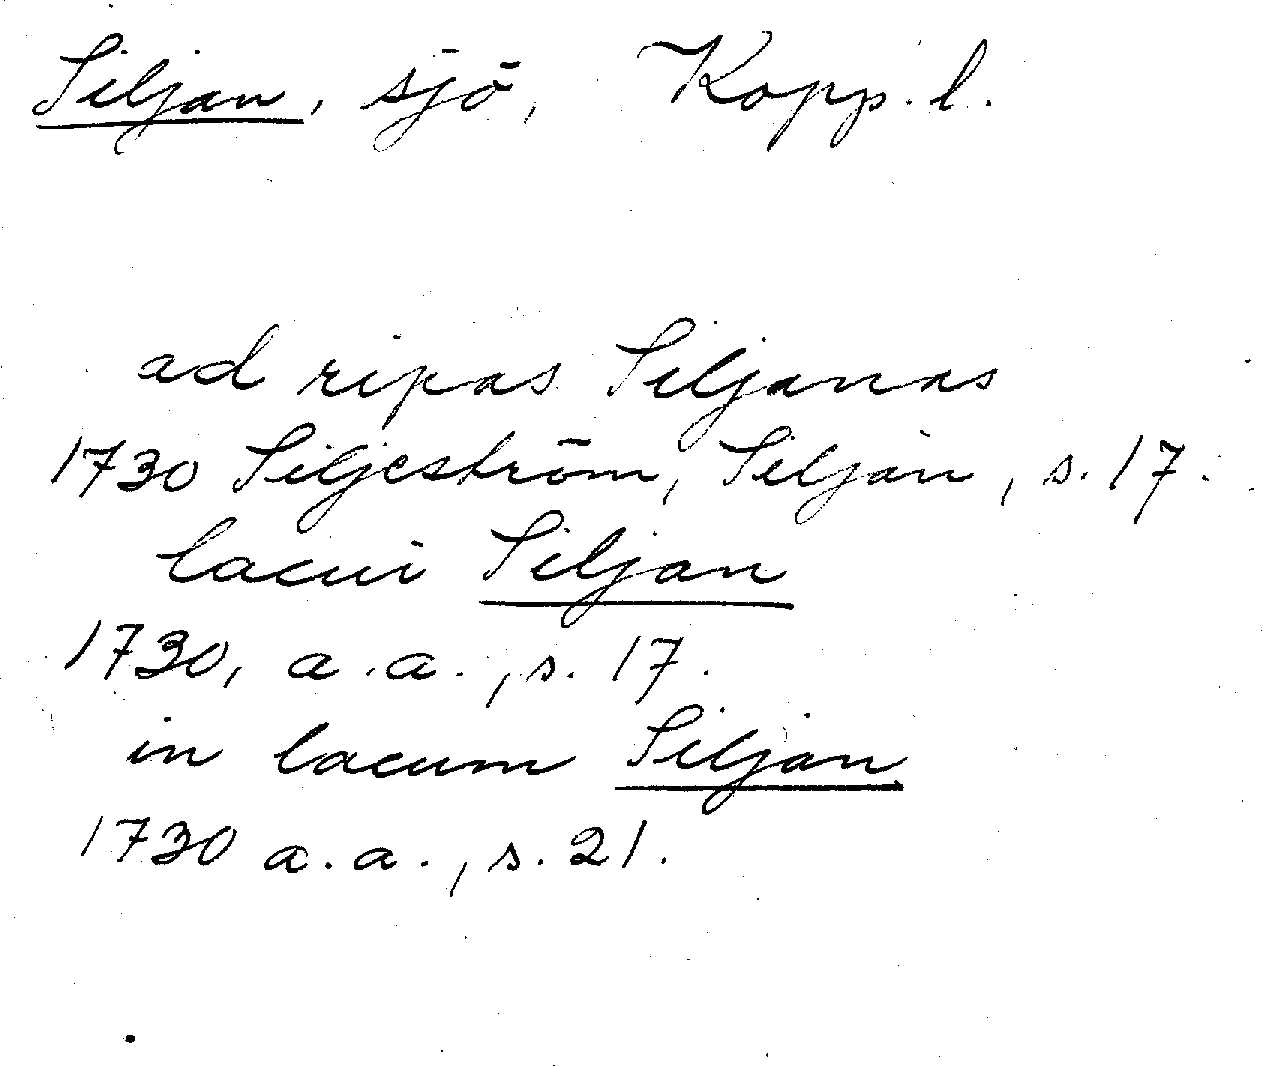 Siljan, sjö, Kopp. l.
ad ripas Siljanas
1730 Siljeström, Siljan, s. 17.
lacui Siljan
1730, a.a., s. 17.
in lacum Siljan
1730 a.a., s. 21.